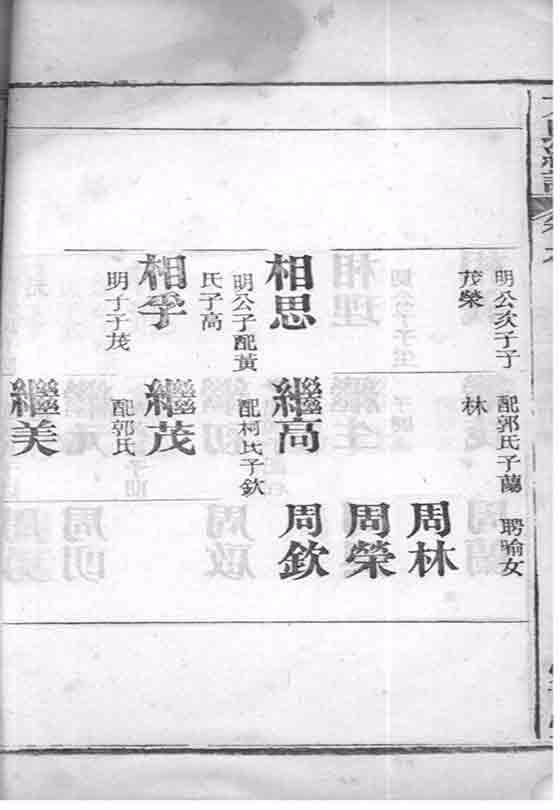 明公次子子
茂榮
相思
明公子配黃
氏子高
相孚
明子子茂
配郭氏子蘭
林
繼高
配柯氏子欽
繼茂
配郭氏
繼美
聘喻女
周林
周榮
周欽